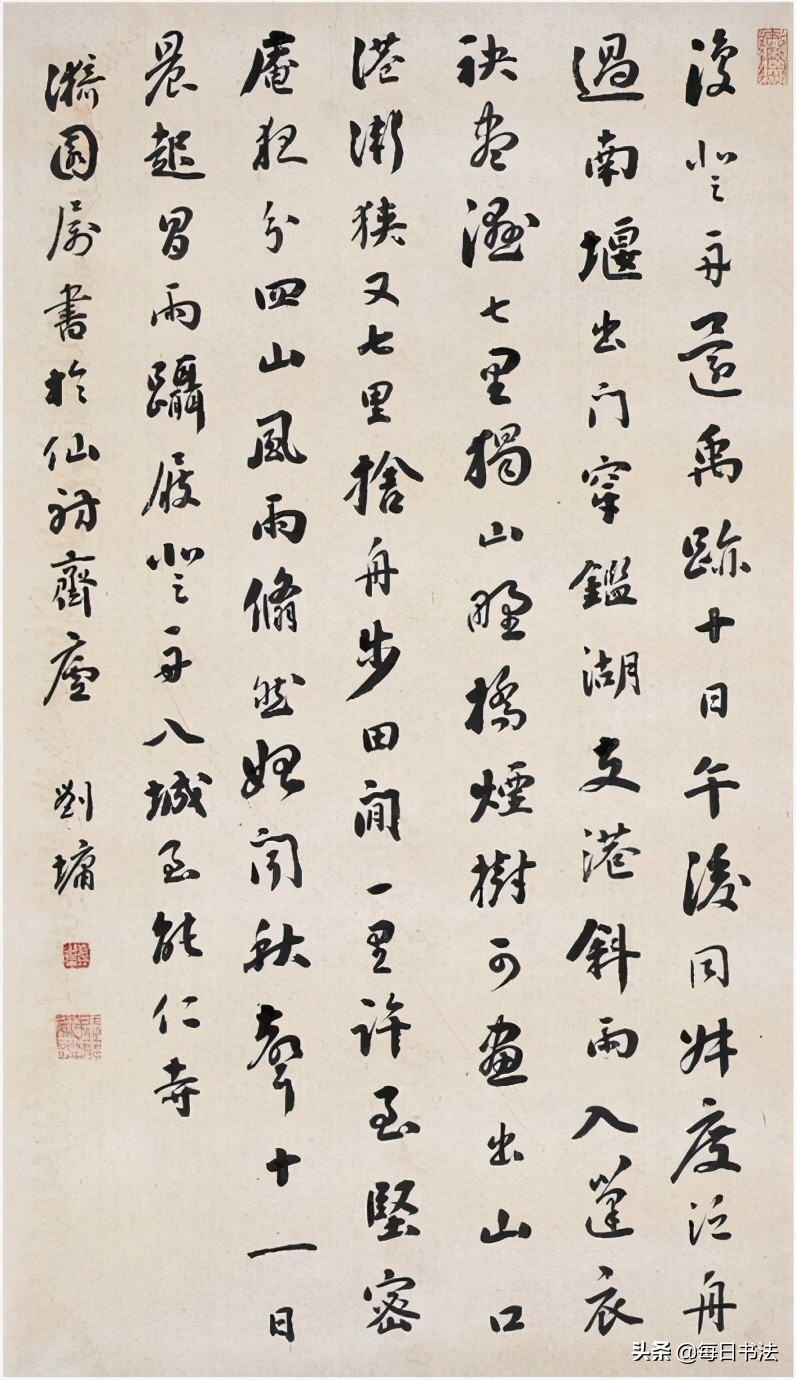 復登舟還禹跡十日午後同度泛舟
過南堰出門穿鑑湖支港斜雨入篷衣
袂盡濕七里獨山野橋煙樹可畫出山口
港漸狹又七里捨舟步田間一里許至堅密
庵夜分四山風雨翛然始聞秋聲十一日
晨起冒雨躡屐登舟入城至能仁寺
漪園屬書於仙舫齋廬 劉墉
头条 @每日书法